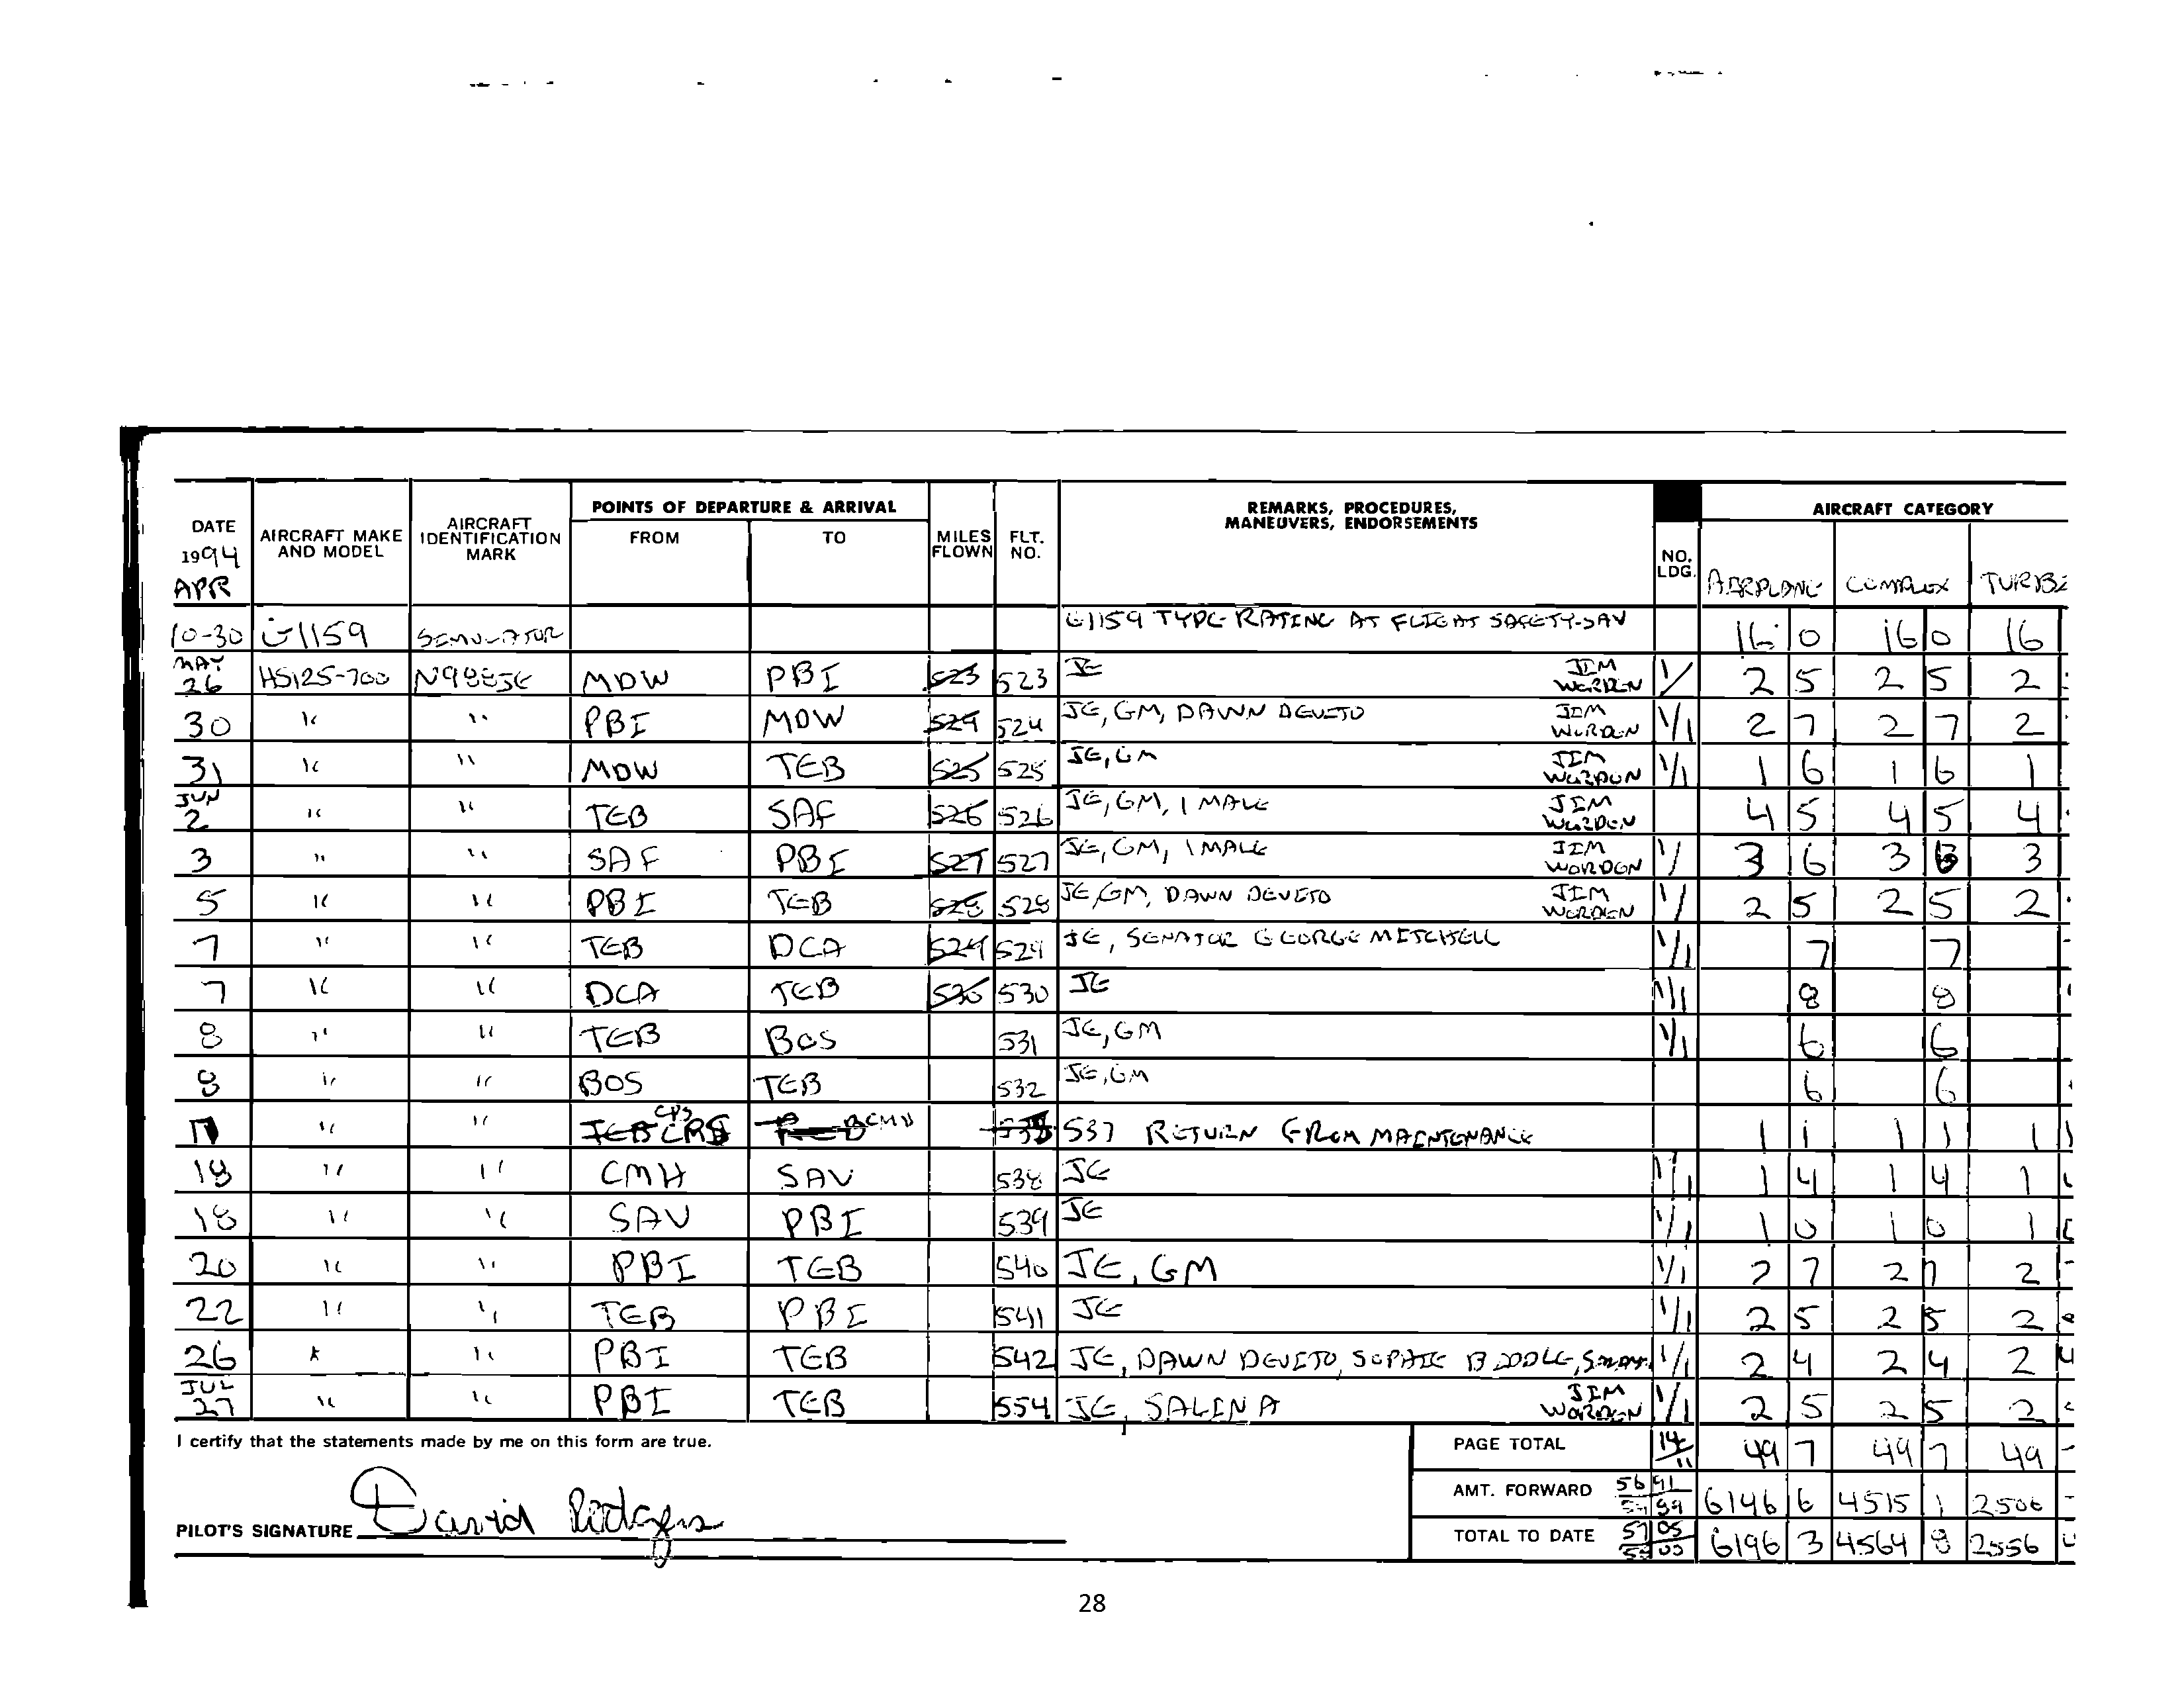 POINTS OF DEPARTURE & ARRIVAL
REMARKS, PROCEDURES, MANEUVERS, ENDORSEMENTS
AIRCRAFT CATEGORY
DATE 1994 APR AIRCRAFT MAKE AND MODEL AIRCRAFT IDENTIFICATION MARK FROM TO MILES FLOWN FLT. NO. NO. LDG. AIRPLANE COMPLEX
10-30 G1159 SIMULATOR G1159 TYPE RATING AT FLIGHT SAFETY-SAV 16 0 16 0 16
MAY 26 HS125-700 MDW PBI 523 523 JE JIM WORDEN 1/ 2 5 2 5 2
30 " " PBI MDW 524 524 JE, GM, DAWN DEVITO JIM WORDEN 1/1 2 7 2 7 2
31 " " MDW TEB 525 525 JE, GM JIM WORDEN 1/1 1 6 1 6 1
JUN 2 " " TEB SAF 526 526 JE, GM, 1 MALE JIM WORDEN 4 5 4 5 4
3 " " SAF PBI 527 527 JE, GM, 1 MALE JIM WORDEN 1/ 3 6 3 6 3
5 " " PBI TEB 528 528 JE, GM, DAWN DEVITO JIM WORDEN 1/ 2 5 2 5 2
7 " " TEB DCA 529 529 JE, SENATOR GEORGE MITCHELL 1/1 7 7
7 " " DCA TEB 530 530 JE 1/1 8 8
8 " " TEB BOS 531 JE, GM 1/1 6 6
8 " " BOS TEB 532 JE, GM 6 6
17 " " CPS CMH 537 RETURN FROM MAINTENANCE 1 1 1 1 1
18 " " CMH SAV 538 JE 1/1 1 4 1 4 1
18 " " SAV PBI 539 JE 1/1 1 0 1 0 1
20 " " PBI TEB 540 JE, GM 1/1 2 7 2 7 2
22 " " TEB PBI 541 JE 1/1 2 5 2 5 2
26 " " PBI TEB 542 JE, DAWN DEVITO, SOPHIE BIDDLE, 1/1 2 4 2 4 2 4
JUL 27 " " PBI TEB 554 JE, SALINA JIM WORDEN 1/1 2 5 2 5 2
I certify that the statements made by me on this form are true. PAGE TOTAL 14/11 49 7 49 7 49
AMT. FORWARD 5691 6146 6 4515 1 2506
PILOT'S SIGNATURE David Rodgers TOTAL TO DATE 5705 6196 3 4564 8 2556
28